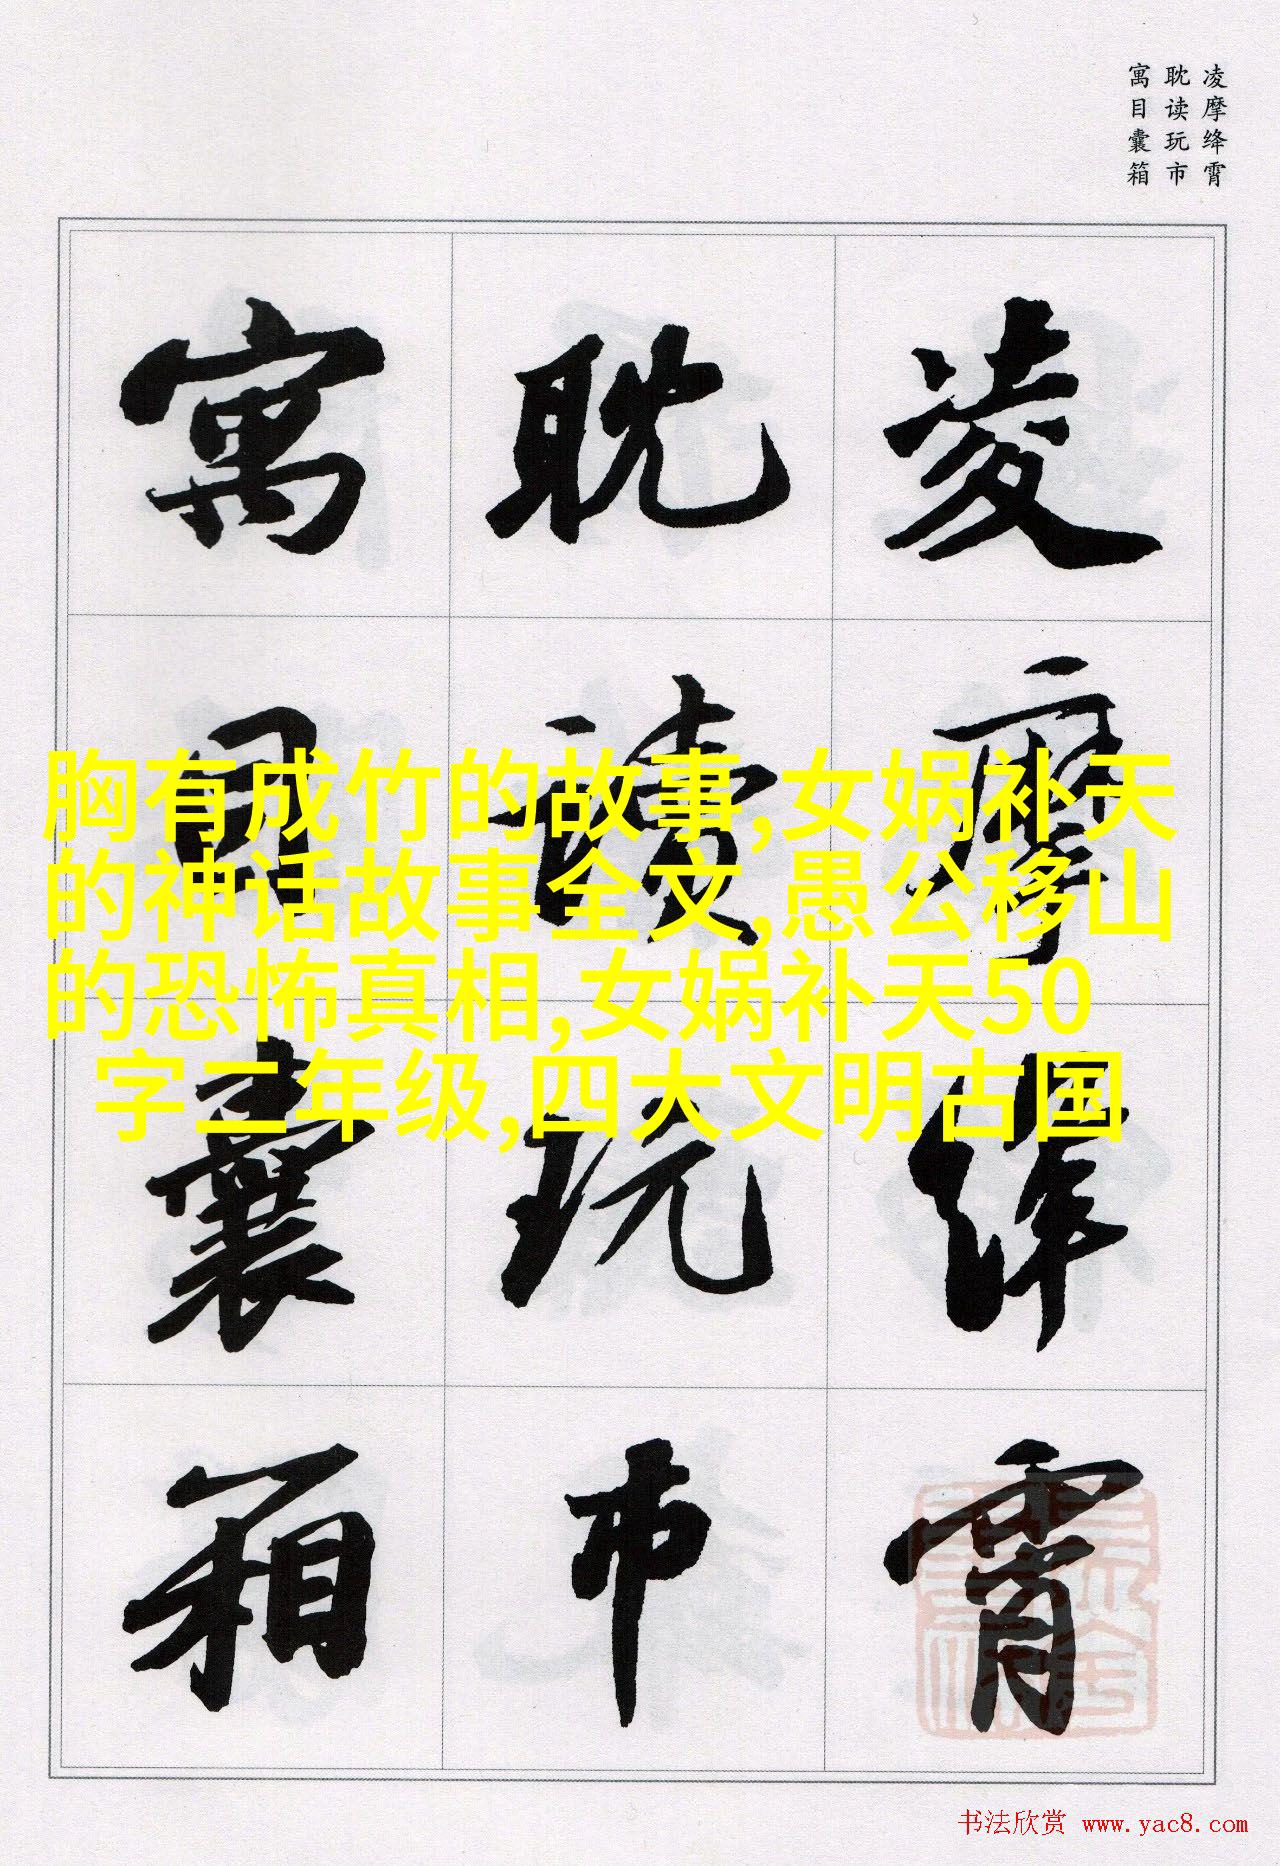 凌摩绛霄
耽读玩市
寓目囊箱
凌摩绛霄
耽读玩市
寓目囊箱
胸有成竹的故事,女娲补天
的神话故事全文,愚公移山
的恐怖真相,女娲补天50
字二年级,四大文明古国
书法欣赏 www.yac8.com